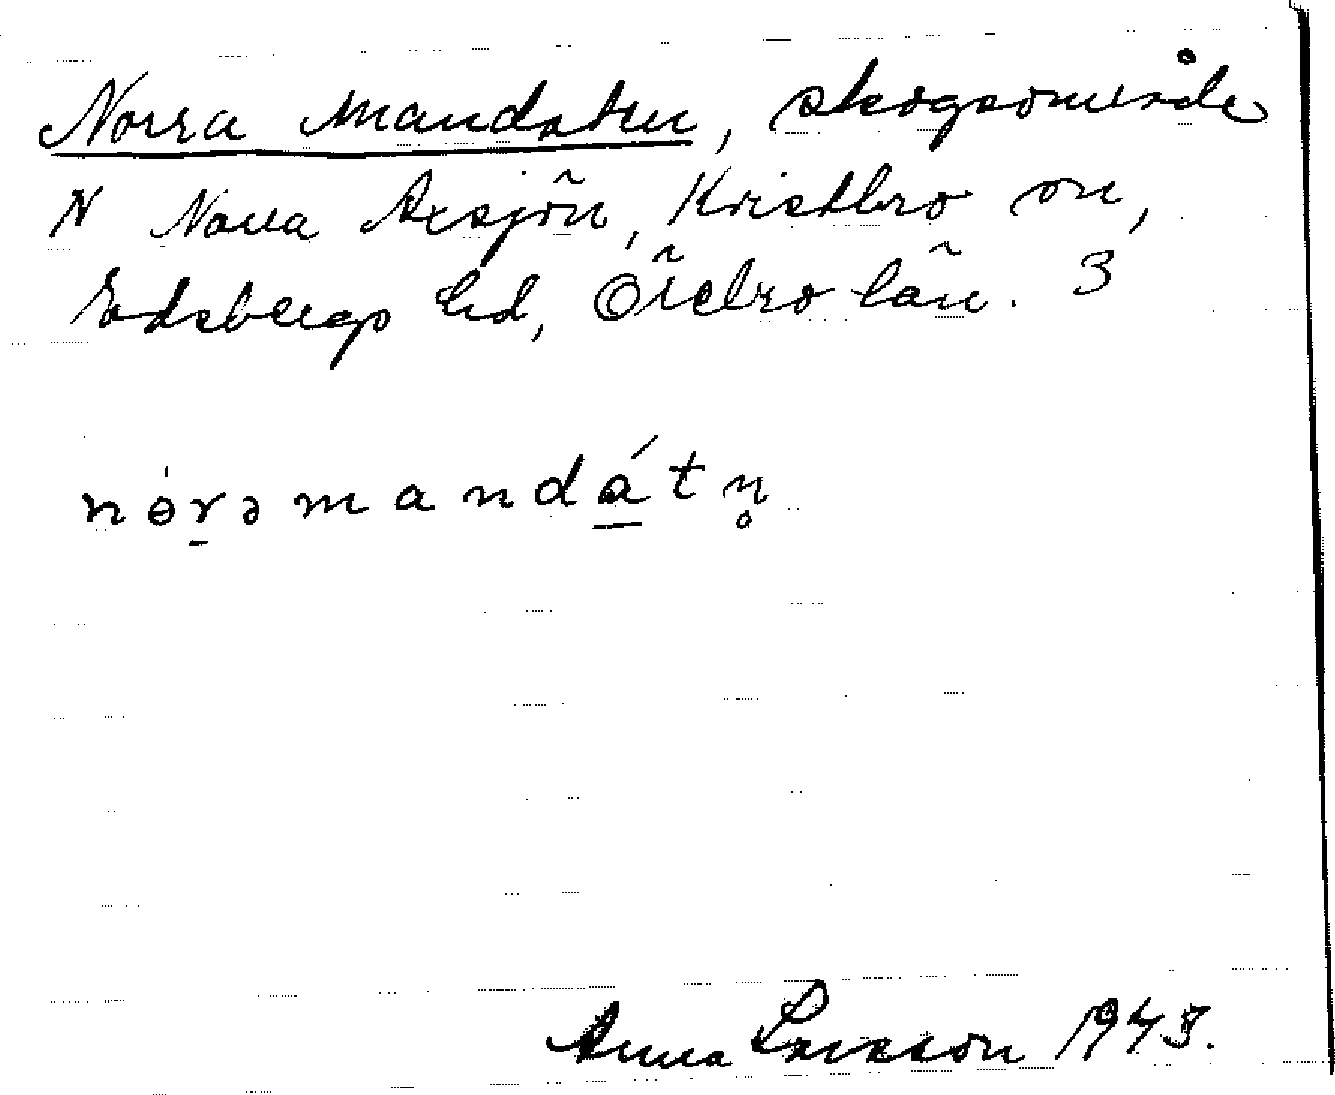 Norra Mandaten, skogsområde
N Norra Axsjön, Kristbro on,
Edsbergs hd, Örebro län. 3
nórəmandátn̥
Anna Larsson 1943.